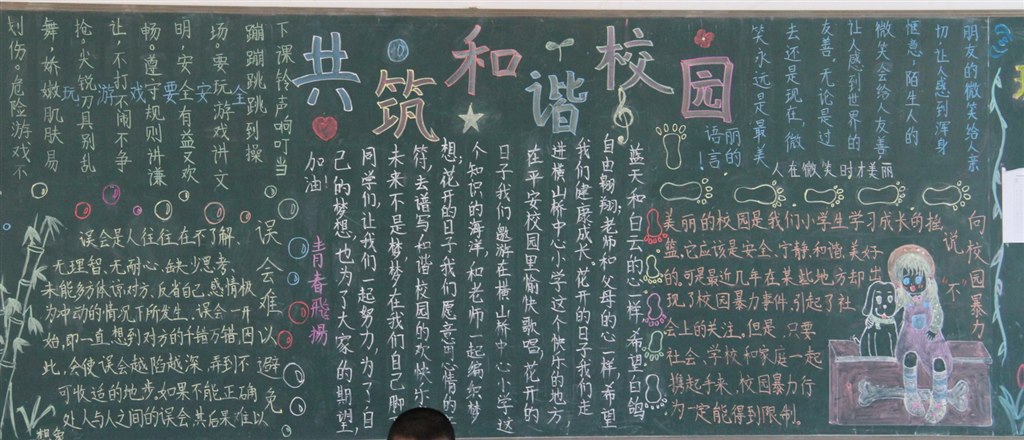 共筑和谐校园
玩游戏要安全
下课铃声响叮当
蹦蹦跳跳到操
场。要玩游戏讲文
明,安全有益又欢
畅。遵守规则讲谦
让,不打不闹不争
抢。尖锐刀具别乱
舞,娇嫩肌肤易
划伤。危险游戏不
误会难以避免
误会是人往往在不了解、
无理智、无耐心、缺少思考、
未能多方体谅对方、反省自己,感情极
为冲动的情况下所发生。误会一开
始,即一直想到对方的千错万错,因
此,会使误会越陷越深,弄到不
可收拾的地步,如果不能正确
处人与人之间的误会,其后果难以
想象
青春飛揚
蓝天和白云的心一样,希望白鸽
自由翱翔;老师和父母的心一样,希望
我们健康成长。花开的日子我们走
进横山桥中心小学这个快乐的地方,
在平安校园里愉快歌唱;花开的
日子我们遨游在横山桥中心小学这
个知识的海洋,和老师一起编织梦
想;花开的日子我们愿意用心情的
符,去谱写和谐校园的欢快小
未来不是梦,梦在我们自己脚
同学们,让我们一起努力,为了自
己的梦想,也为了大家的期望,
加油!
朋友的微笑给人亲
切,让人感到浑身
惬意;陌生人的
微笑会给人友善,
让人感到世界的
友善。无论是过
去还是现在,微
笑永远是最美
丽的
语言!
人在微笑时才美丽
向校园暴力
说“不”
美丽的校园是我们小学生学习成长的摇
篮,它应该是安全、宁静、和谐、美好
的,可是最近几年在某些地方却出
现了校园暴力事件,引起了社
会上的关注。但是,只要
社会、学校和家庭一起
携起手来,校园暴力行
为一定能得到限制。